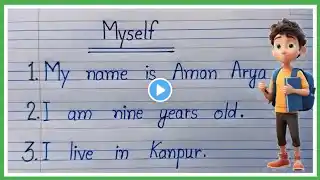 Myself
1. My name is Aman Arya
2. I am nine years old.
3. I live in Kanpur.